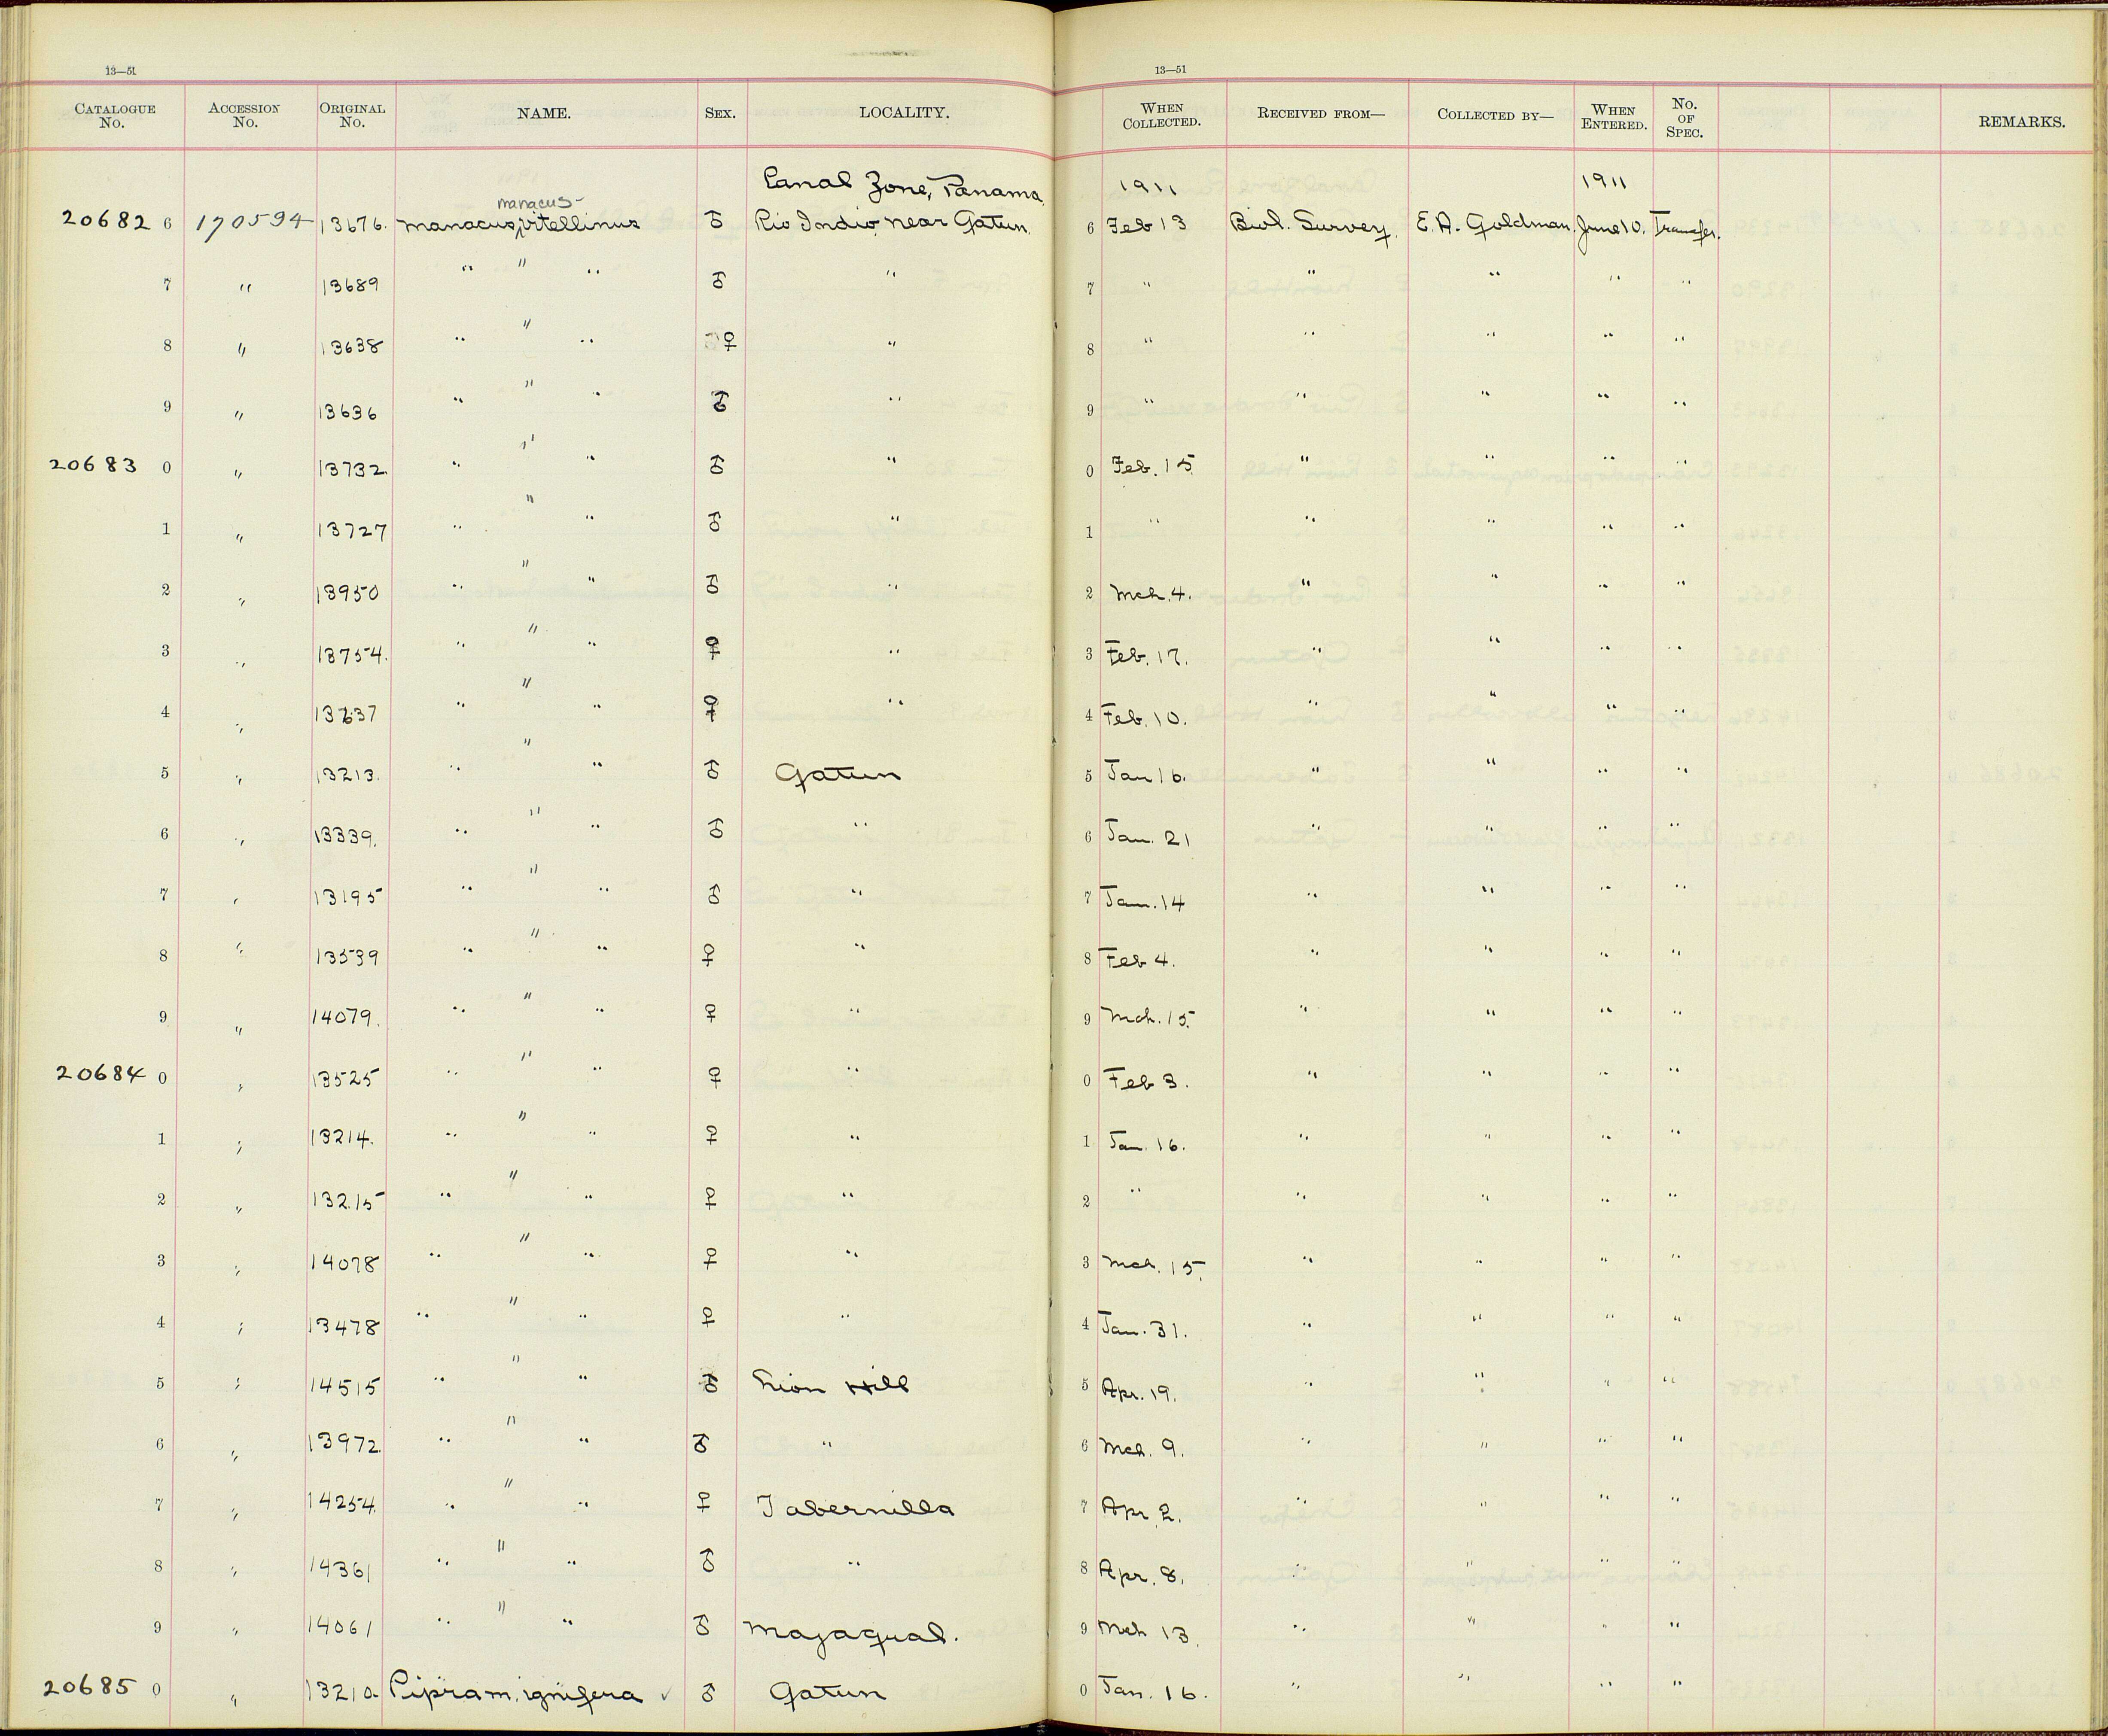 13—51 13—51
CATALOGUE No. ACCESSION No. ORIGINAL No. NAME. SEX. LOCALITY. WHEN COLLECTED. RECEIVED FROM— COLLECTED BY— WHEN ENTERED. No. OF SPEC. REMARKS.
Canal Zone, Panama. 1911 1911
manacus-
20682 6 170594 13676. Manacus vitellinus ♂ Rio Indio near Gatun. 6 Feb 13 Biol. Survey. E. A. Goldman June 10. Transfer.
7 " 13689 " " " ♂ " 7 " " " " "
8 " 13638 " " " ♀ " 8 " " " " "
9 " 13636 " " " ♂ " 9 " " " " "
20683 0 " 13732. " " " ♂ " 0 Feb. 15. " " " "
1 " 13727 " " " ♂ " 1 " " " " "
2 " 13950 " " " ♂ " 2 Mch. 4. " " " "
3 " 13754. " " " ♀ " 3 Feb. 17. " " " "
4 " 13637 " " " ♀ " 4 Feb. 10. " " " "
5 " 13213. " " " ♂ Gatun 5 Jan 16. " " " "
6 " 13339. " " " ♂ " 6 Jan. 21 " " " "
7 " 13195 " " " ♂ " 7 Jan. 14 " " " "
8 " 13539 " " " ♀ " 8 Feb 4. " " " "
9 " 14079. " " " ♀ " 9 Mch. 15. " " " "
20684 0 " 13525 " " " ♀ " 0 Feb 3. " " " "
1 " 13214. " " " ♀ " 1 Jan. 16. " " " "
2 " 13215 " " " ♀ " 2 " " " " "
3 " 14078 " " " ♀ " 3 Mch. 15. " " " "
4 " 13478 " " " ♀ " 4 Jan. 31. " " " "
5 " 14515 " " " ♂ Lion Hill 5 Apr. 19. " " " "
6 " 13972. " " " ♂ " 6 Mch. 9. " " " "
7 " 14254. " " " ♀ Tabernilla 7 Apr. 2. " " " "
8 " 14361 " " " ♂ " 8 Apr. 8. " " " "
9 " 14061 " " " ♂ Majagual. 9 Mch 13. " " " "
20685 0 " 13210. Pipra m. ignifera ✓ ♂ Gatun 0 Jan. 16. " " " "